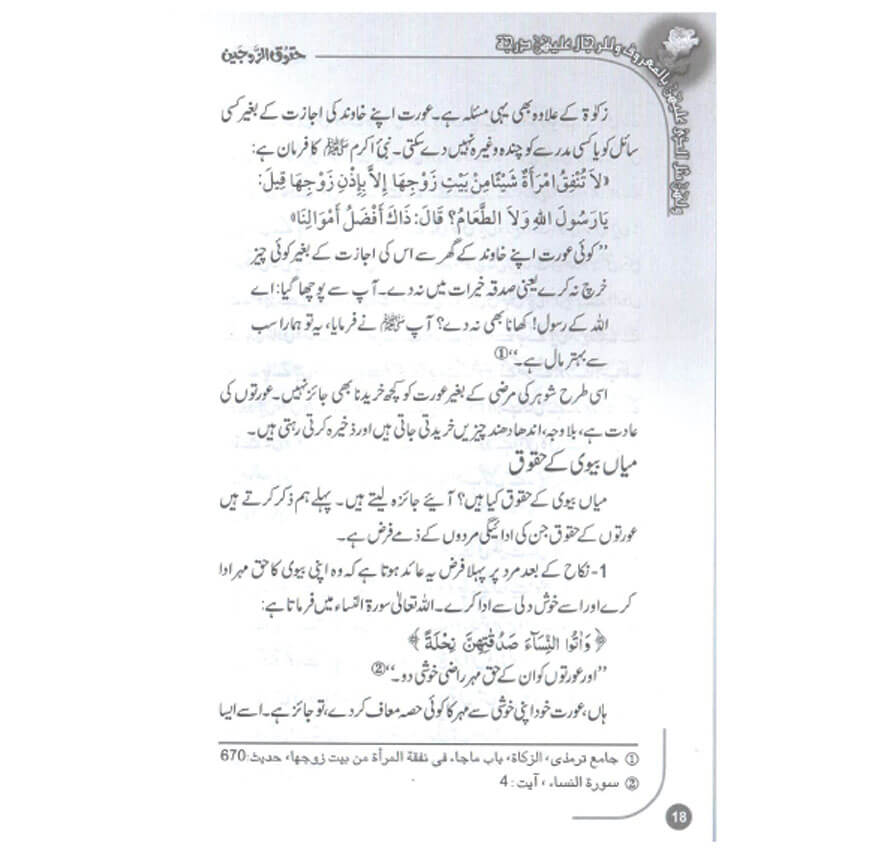 حقوق الزوجین
ولهن مثل الذی علیهن بالمعروف وللرجال علیهن درجة
زکوٰۃ کے علاوہ بھی یہی مسئلہ ہے۔ عورت اپنے خاوند کی اجازت کے بغیر کسی
سائل کو یا کسی مدرسے کو چندہ وغیرہ نہیں دے سکتی۔ نبیٔ اکرم ﷺ کا فرمان ہے:
«لاَ تُنْفِقُ امْرَأَةٌ شَيْئًا مِنْ بَيْتِ زَوْجِهَا إِلاَّ بِإِذْنِ زَوْجِهَا قِيلَ:
يَا رَسُولَ اللهِ وَلاَ الطَّعَامُ؟ قَالَ: ذَاكَ أَفْضَلُ أَمْوَالِنَا»
”کوئی عورت اپنے خاوند کے گھر سے اس کی اجازت کے بغیر کوئی چیز
خرچ نہ کرے یعنی صدقہ خیرات میں نہ دے۔ آپ سے پوچھا گیا: اے
اللہ کے رسول! کھانا بھی نہ دے؟ آپ ﷺ نے فرمایا، یہ تو ہمارا سب
سے بہتر مال ہے۔“①
اسی طرح شوہر کی مرضی کے بغیر عورت کو کچھ خریدنا بھی جائز نہیں۔ عورتوں کی
عادت ہے، بلاوجہ، اندھا دھند چیزیں خریدتی جاتی ہیں اور ذخیرہ کرتی رہتی ہیں۔
میاں بیوی کے حقوق
میاں بیوی کے حقوق کیا ہیں؟ آیئے جائزہ لیتے ہیں۔ پہلے ہم ذکر کرتے ہیں
عورتوں کے حقوق جن کی ادائیگی مردوں کے ذمے فرض ہے۔
1- نکاح کے بعد مرد پر پہلا فرض یہ عائد ہوتا ہے کہ وہ اپنی بیوی کا حق مہر ادا
کرے اور اسے خوش دلی سے ادا کرے۔ اللہ تعالیٰ سورۃ النساء میں فرماتا ہے:
﴿ وَاٰتُوا النِّسَآءَ صَدُقٰتِهِنَّ نِحْلَةً ﴾
”اور عورتوں کو ان کے حق مہر راضی خوشی دو۔“②
ہاں، عورت خود اپنی خوشی سے مہر کا کوئی حصہ معاف کر دے، تو جائز ہے۔ اسے ایسا
① جامع ترمذی، الزکاة، باب ماجاء فی نفقة المرأة من بیت زوجها، حدیث: 670
② سورة النساء، آیت: 4
18